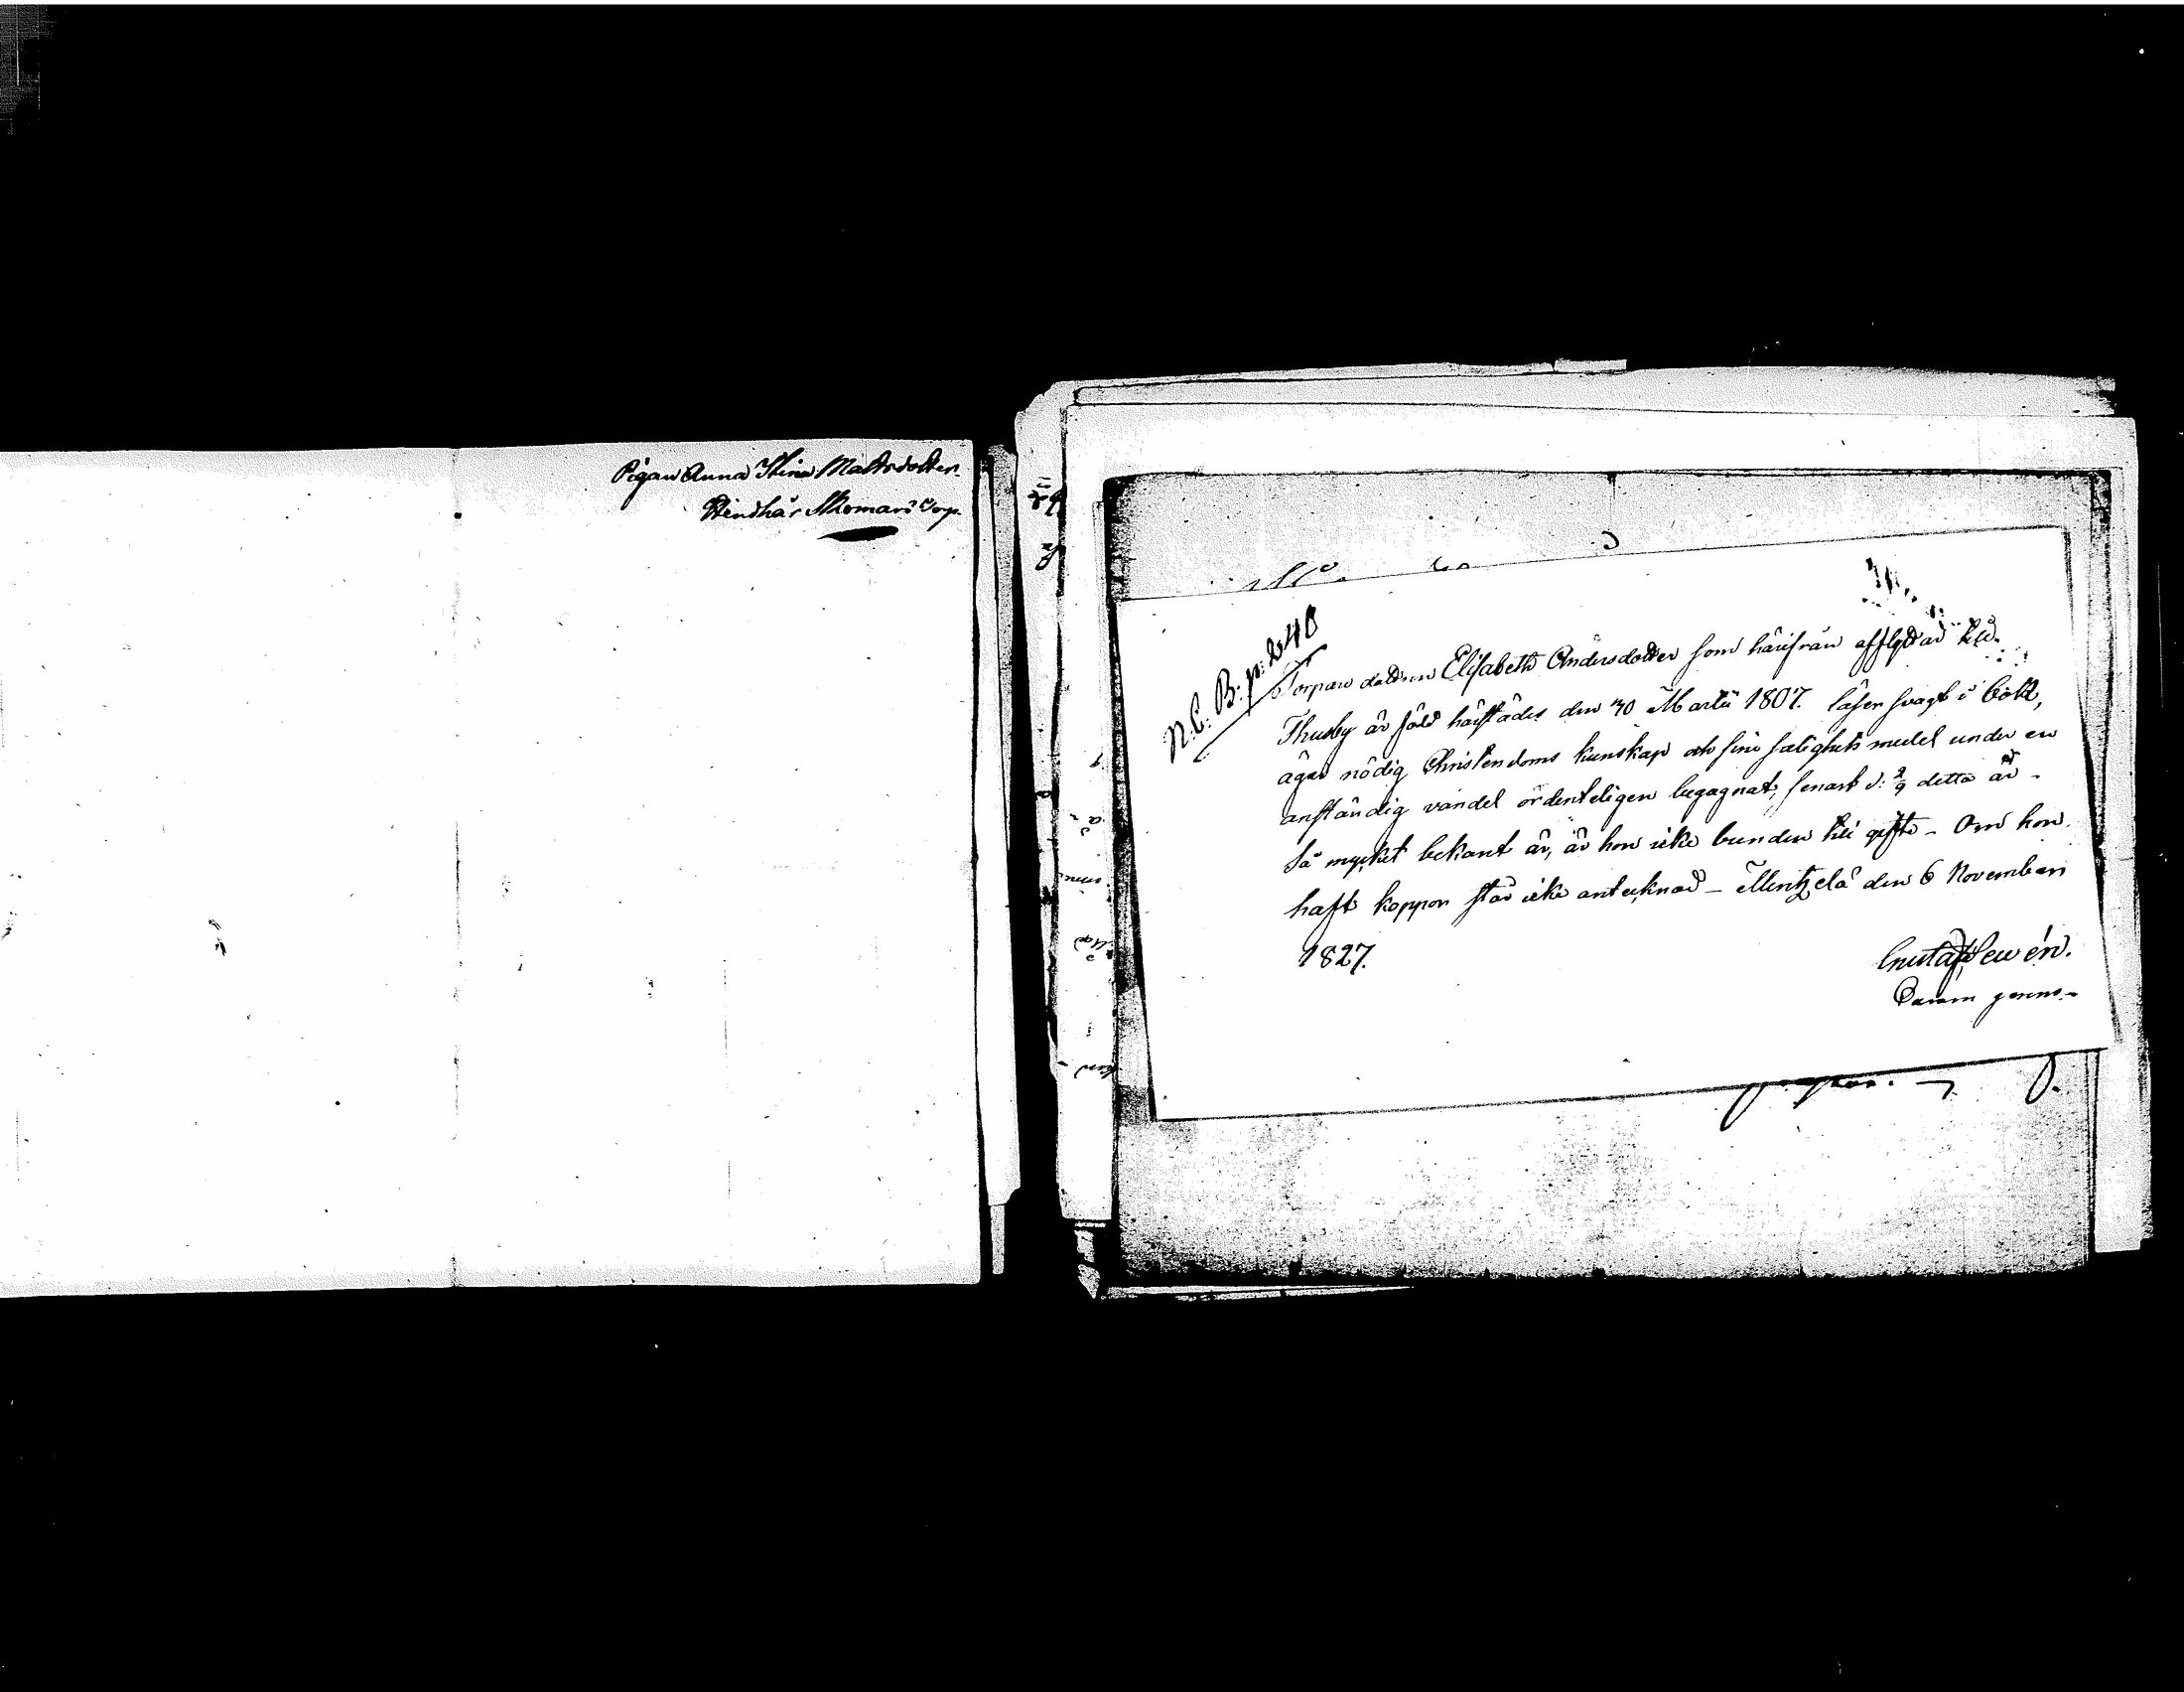 Pigan Anna Stina Mattsdotter
Stendhär Skomars Torp.
N.C.B: p: 240
Torpare dottren Elisabeth Andersdotter som härifrån afflyttar till
Thusby är född härstädes den 30 Martii 1807. läser svagt i bok,
äger nödig Christendoms kunskap och sine salighets medel under en
anständig vandel ordenteligen begagnat, senast d: 2/9 detta år -
Så mycket bekant är, är hon icke bunden till gifte - Om hon
haft koppor står icke antecknad - Mentzelä den 6 November
1827.
Gustaf Lewén.